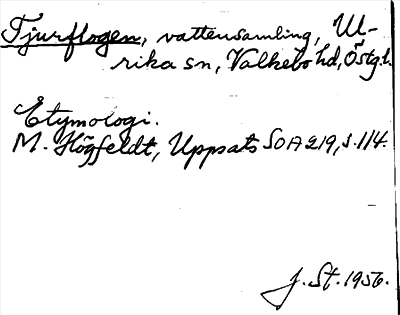 Tjurflogen, vattensamling, Ul-
rika sn, Valkebo hd, Östg.l.
Etymologi.
M. Högfeldt, Uppsats SOA 219, s. 114.
J. St. 1956.